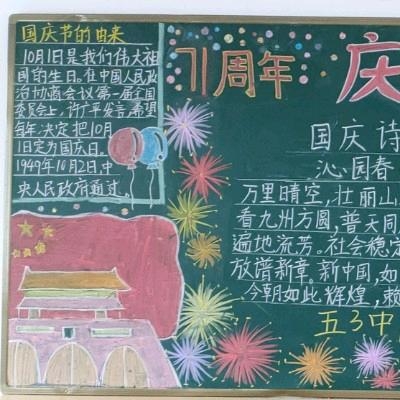 国庆节的由来
10月1日是我们伟大祖
国的生日。在中国人民政
治协商会议第一届全国
委员会上，许广平发言，希望
每年决定把10月
1日定为国庆日。
1949年10月2日，中
央人民政府通过
71周年
庆
国庆诗
沁园春
万里晴空，壮丽山
看九州方圆，普天同
遍地流芳。社会稳定
放谱新章。新中国，如
今朝如此辉煌，赖
五3中